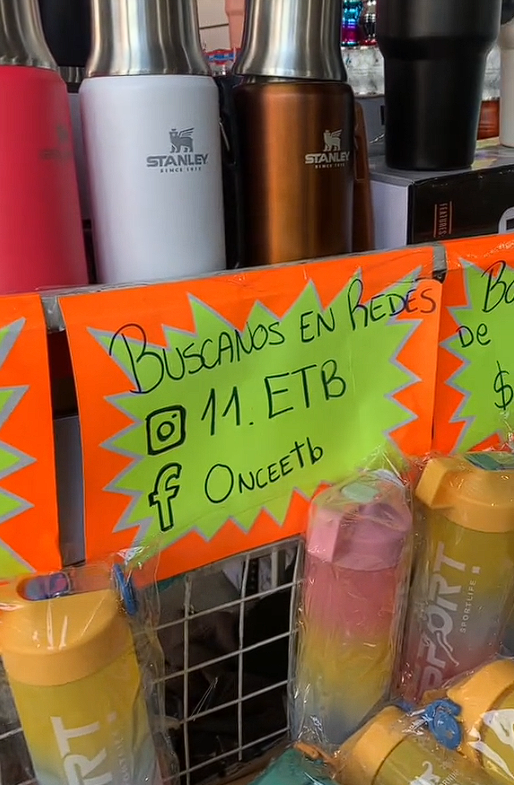 STANLEY
SINCE 1913
STANLEY
SINCE 1913
FEATURES
BUSCANOS EN REDES
11.ETB
Onceetb
De
$
SPORT
SPORTLIFE